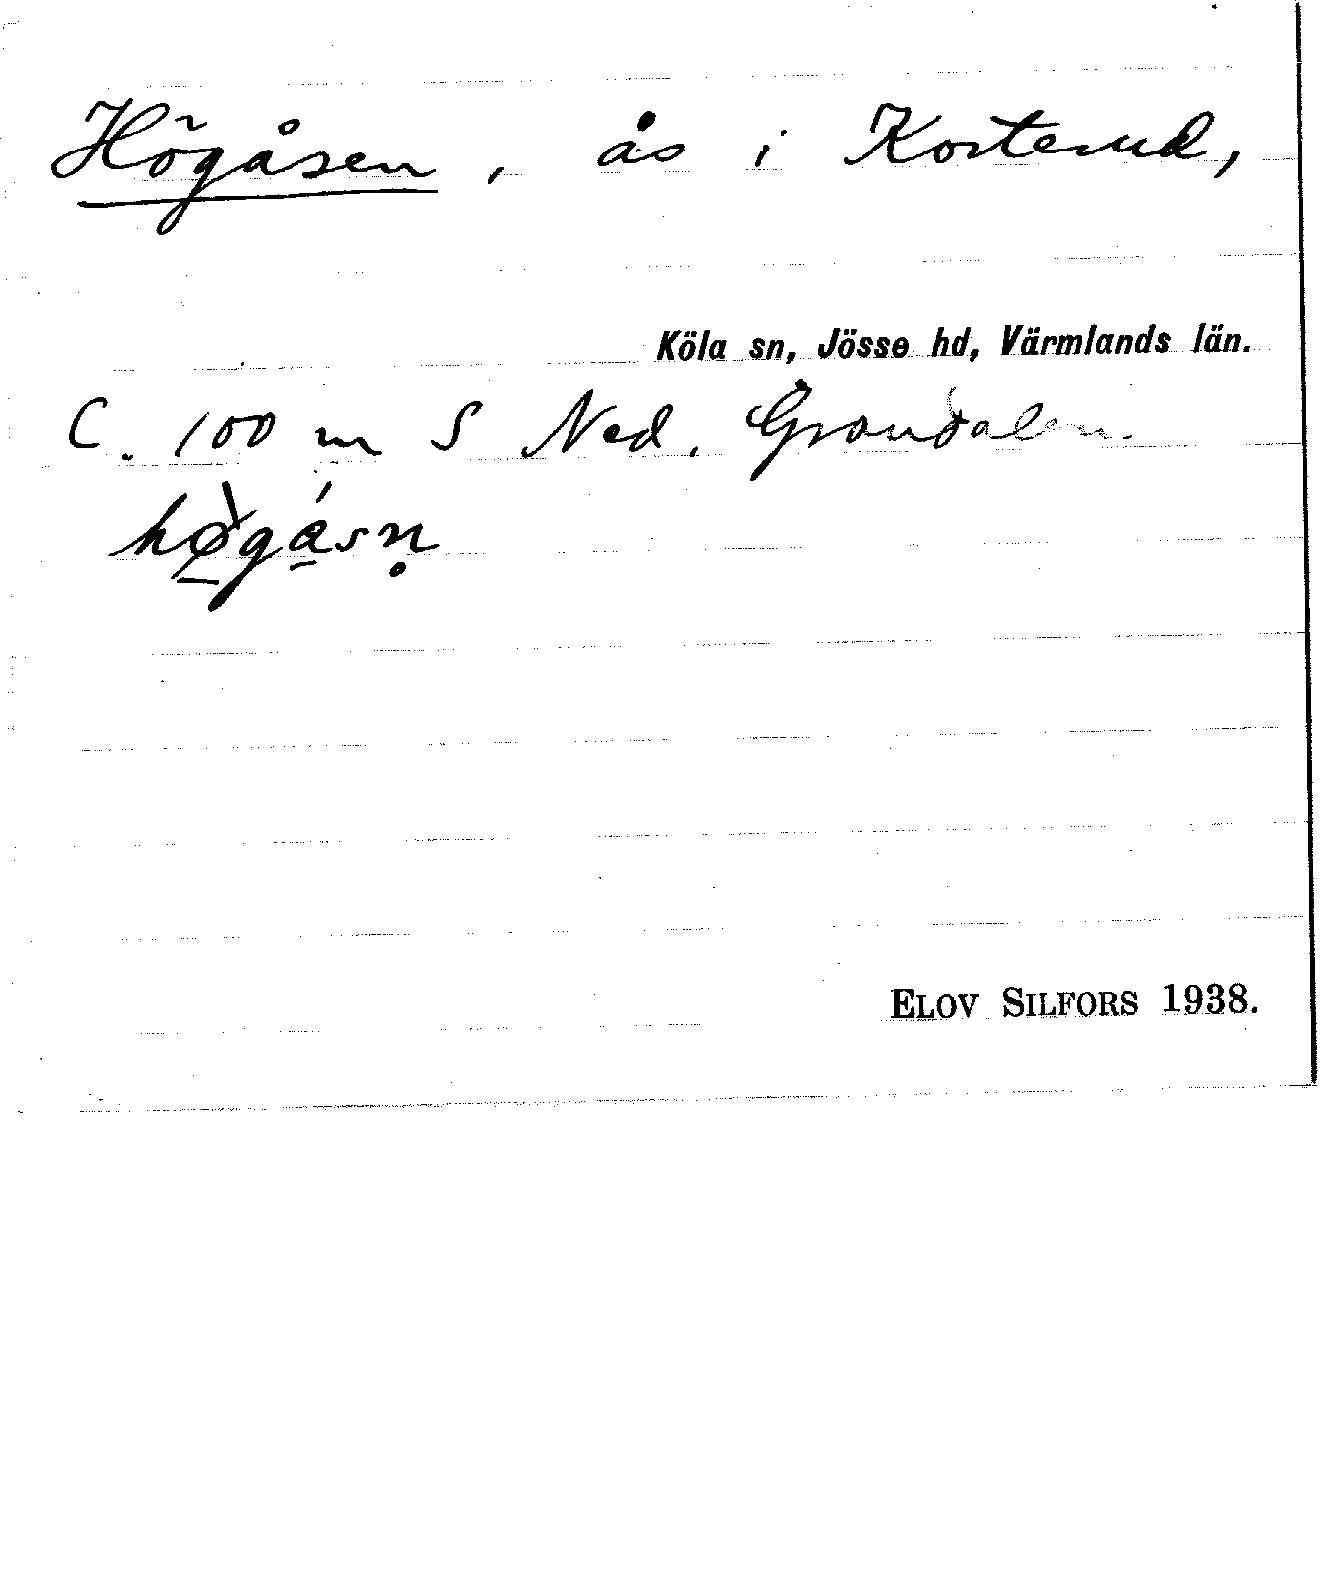 Högåsen, ås i Kosterud,
Köla sn, Jösse hd, Värmlands län.
C. 100 m S Ned. Grandalen.
hø̠̀gá̠sn̥
ELOV SILFORS 1938.